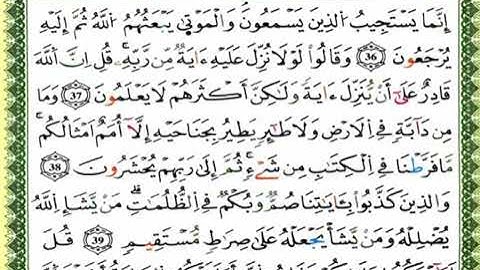 إِنَّمَا يَسْتَجِيبُ الذِينَ يَسْمَعُونَ وَالْمَوْتٰى يَبْعَثُهُمُ اللَّهُ ثُمَّ إِلَيْهِ
يُرْجَعُونَ 36 وَقَالُوا لَوْلَا نُزِّلَ عَلَيْهِ ءَايَةٌ مِن رَّبِّهِ قُلِ انَّ اللَّهَ
قَادِرٌ عَلَىٰ أَنْ يُنَزِّلَ ءَايَةً وَلَٰكِنَّ أَكْثَرَهُمْ لَا يَعْلَمُونَ 37 وَمَا
مِن دَآبَّةٍ فِي الَارْضِ وَلَا طَٰٓئِرٍ يَطِيرُ بِجَنَاحَيْهِ إِلَّآ أُمَمٌ امْثَالُكُم
مَّا فَرَّطْنَا فِي الْكِتَٰبِ مِن شَيْءٍ ثُمَّ إِلَىٰ رَبِّهِمْ يُحْشَرُونَ 38
وَالذِينَ كَذَّبُوا بِـَٔايَٰتِنَا صُمٌّ وَبُكْمٌ فِي الظُّلُمَٰتِ مَنْ يَّشَإِ اللَّهُ
يُضْلِلْهُ وَمَنْ يَّشَأْ يَجْعَلْهُ عَلَىٰ صِرَٰطٍ مُّسْتَقِيمٍ 39 قُلَ